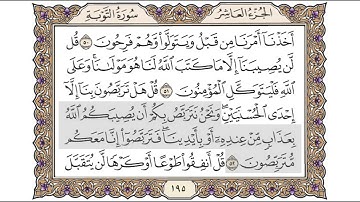 الجزء العاشر
سورة التوبة
أَخَذْنَا أَمْرَنَا مِن قَبْلُ وَيَتَوَلَّوا۟ وَّهُمْ فَرِحُونَ ٥٠ قُل
لَّن يُصِيبَنَا إِلَّا مَا كَتَبَ ٱللَّهُ لَنَا هُوَ مَوْلَىٰنَا وَعَلَى
ٱللَّهِ فَلْيَتَوَكَّلِ ٱلْمُؤْمِنُونَ ٥١ قُلْ هَلْ تَرَبَّصُونَ بِنَا إِلَّا
إِحْدَى ٱلْحُسْنَيَيْنِ وَنَحْنُ نَتَرَبَّصُ بِكُمْ أَن يُصِيبَكُمُ ٱللَّهُ
بِعَذَابٍ مِّنْ عِندِهِ أَوْ بِأَيْدِينَا فَتَرَبَّصُوا۟ إِنَّا مَعَكُم
مُّتَرَبِّصُونَ ٥٢ قُلْ أَنفِقُوا۟ طَوْعًا أَوْ كَرْهًا لَّن يُتَقَبَّلَ
١٩٥